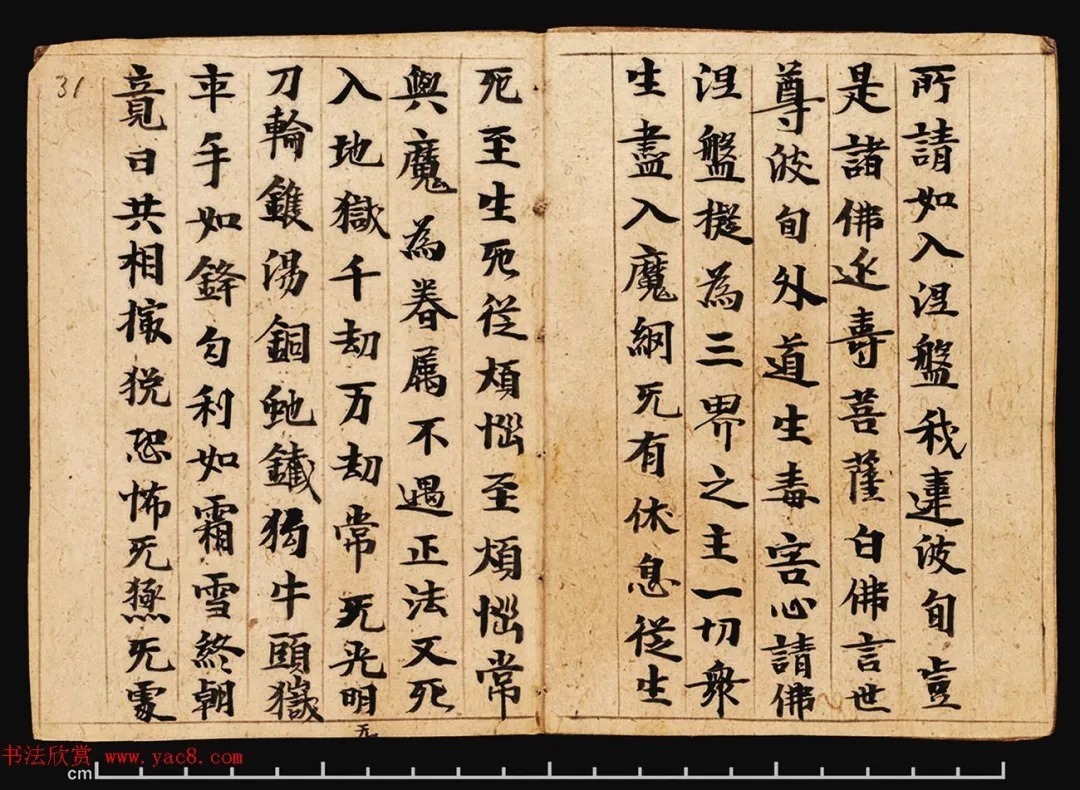 所請如入涅盤我違波旬豈
是諸佛延壽菩薩白佛言世
尊波旬外道生毒害心請佛
涅盤擬為三界之主一切衆
生盡入魔網无有休息從生
死至生死從煩惱至煩惱常
與魔為眷属不遇正法又死
入地獄千劫万劫常死光明
无
刀輪鑊湯銅虵鐵狗牛頭獄
卒手如鋒勾利如霜雪終朝
竟日共相恐怖无无處
31
书法欣赏 www.yac8.com
cm